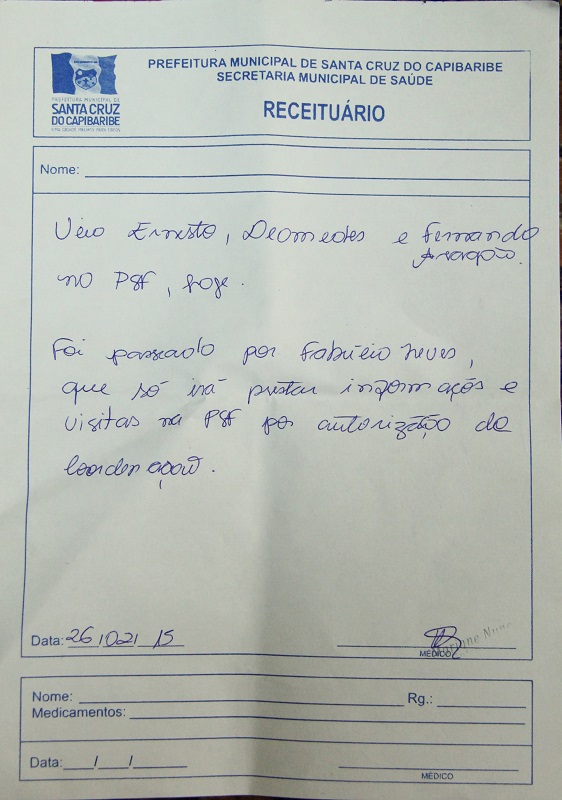 PREFEITURA MUNICIPAL DE SANTA CRUZ DO CAPIBARIBE
SECRETARIA MUNICIPAL DE SAÚDE
RECEITUÁRIO
PREFEITURA MUNICIPAL DE
SANTA CRUZ
DO CAPIBARIBE
Nome:
Veio Ernesto, Deomedes e Fernando
Aragão.
no PSF, hoje.
Foi passado por Fabrício Neves,
que só irá prestar informações e
visitas no PSF por autorização da
Coordenação.
Data: 26/02/15
MÉDICO
Nome: Rg.:
Medicamentos:
Data: / /
MÉDICO